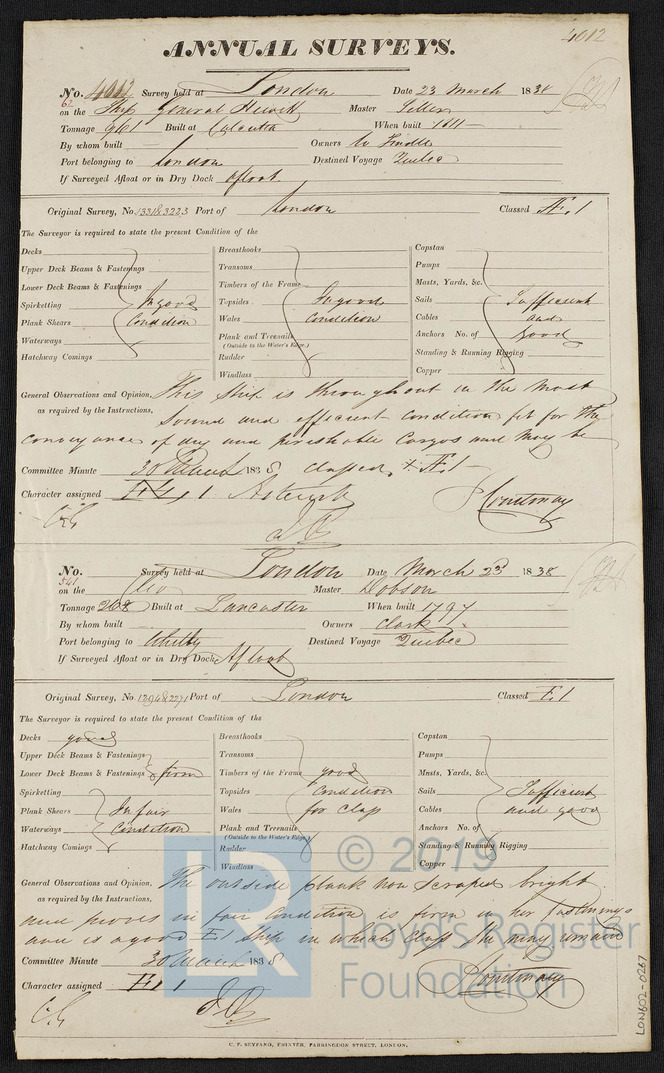 4012
ANNUAL SURVEYS.
No. 4012 Survey held at London Date 23 March 1838
62
on the Ship General Hewitt Master Seller
Tonnage 961 Built at Calcutta When built 1811
By whom built Owners W Tindle
Port belonging to London Destined Voyage Quebec
If Surveyed Afloat or in Dry Dock afloat
Original Survey, No. Port of London Classed Æ.1
The Surveyor is required to state the present Condition of the
Decks Breasthooks Capstan
Upper Deck Beams & Fastenings Transoms Pumps
Lower Deck Beams & Fastenings Timbers of the Frame Masts, Yards, &c.
Spirketting In good Topsides In good Sails Sufficient
Plank Shears Condition Wales Condition Cables and
Waterways Plank and Treenails Anchors No. of good
(Outside to the Water's Edge.)
Hatchway Comings Rudder Standing & Running Rigging
Windlass Copper
General Observations and Opinion, This Ship is throughout in the most
as required by the Instructions, Sound and efficient condition fit for the
conveyance of dry and perishable Cargos and may be
Committee Minute 30 March 1838 classed * Æ.1
Character assigned Æ 1 Asterisk Courtenay
No. Survey held at London Date March 23 1838
541
on the Clio Master Dobson
Tonnage 268 Built at Lancaster When built 1797
By whom built Owners Clark
Port belonging to Whitby Destined Voyage Quebec
If Surveyed Afloat or in Dry Dock Afloat
Original Survey, No. Port of London Classed E.1
The Surveyor is required to state the present Condition of the
Decks good Breasthooks Capstan
Upper Deck Beams & Fastenings Transoms Pumps
Lower Deck Beams & Fastenings firm Timbers of the Frame good Masts, Yards, &c.
Spirketting Topsides Condition Sails Sufficient
Plank Shears In fair Wales for class Cables and good
Waterways Condition Plank and Treenails Anchors No. of
(Outside to the Water's Edge)
Hatchway Comings Rudder Standing & Running Rigging
Windlass Copper
General Observations and Opinion, The outside plank now scraped bright
as required by the Instructions,
and proves in fair Condition is firm in her fastenings
and is a good E.1 Ship in which Class She may remain
Committee Minute 30 March 1838
Character assigned E 1 Courtenay
C. F. SEYFANG, PRINTER, FARRINGDON STREET, LONDON.
LON602-0267
LR © 2019
Lloyd's Register
Foundation